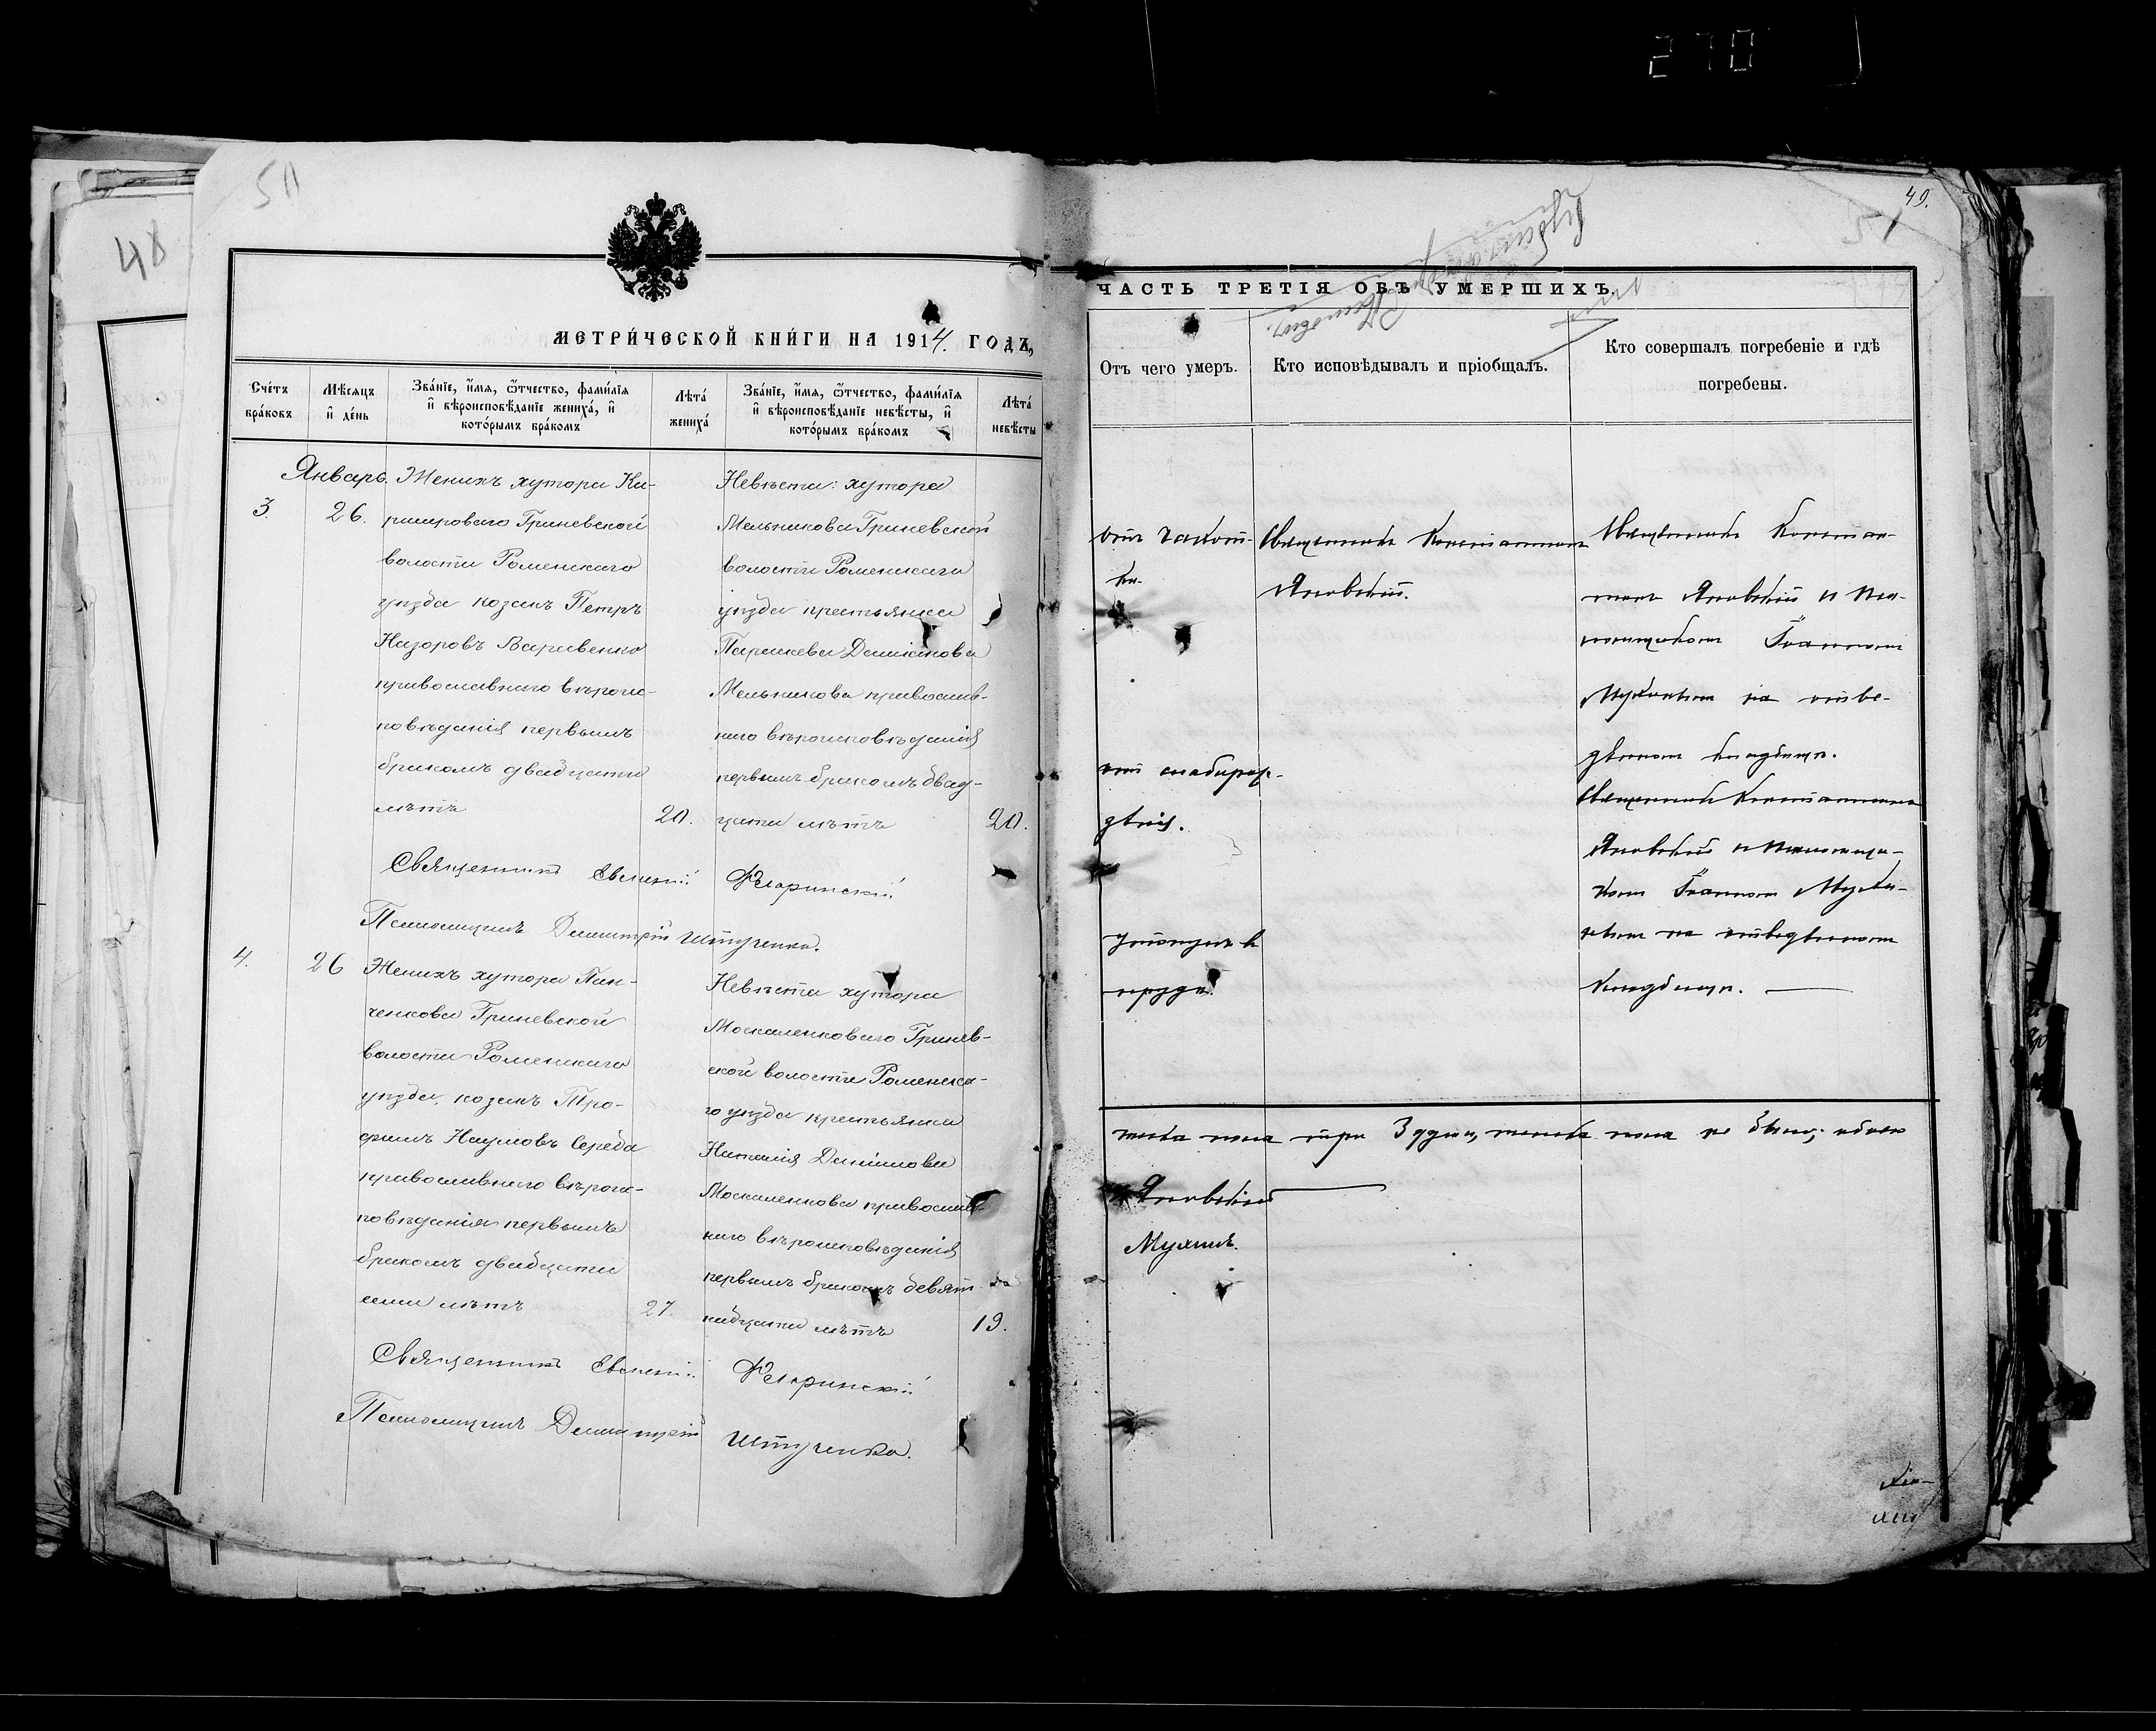 270
50
48
МЕТРИ́ЧЕСКОЙ КНИ́ГИ НА 1914. ГОДЪ,
Сче́тъ бра́ковъ
Мѣ́сяцъ и҆ де́нь
Зва́нїе, и҆́мѧ, ѻ҆́тчество, фами́лїѧ и҆ вѣроисповѣ́данїе жениха́, и҆ кото́рымъ бра́комъ
Лѣта́ жениха́
Зва́нїе, и҆́мѧ, ѻ҆́тчество, фами́лїѧ и҆ вѣроисповѣ́данїе невѣ́сты, и҆ кото́рымъ бра́комъ
Лѣта́ невѣ́сты
Январь.
3.
26.
Женихъ хутора Ка-
Гриневской
волости Роменскаго
уѣзда козакъ Петръ
Назоровъ Вариве́нко
православнаго вѣроис-
повѣданія первымъ
бракомъ двадцати
лѣтъ
20.
Невѣста: хутора
Мельникова Гриневской
волости Роменскаго
уѣзда крестьянка
Параскева Даміанова
Мельникова православ-
наго вѣроисповѣданія
первымъ бракомъ двад-
цати лѣтъ
20.
Священникъ Евгеній
Псаломщикъ Димитрій Штученко.
4.
26
Женихъ хутора Пан-
ченкова Гриневской
волости Роменскаго
уѣзда, козакъ Тро-
фимъ Наумовъ Середа
православнаго вѣроис-
повѣданія первымъ
бракомъ двадцати
семи лѣтъ
27.
Невѣста хутора
Москаленковаго Гринев-
ской волости Роменска-
го уѣзда крестьянка
Наталія Даніилова
Москаленкова православ-
наго вѣроисповѣданія
первымъ бракомъ девят-
надцати лѣтъ
19.
Священникъ Евгеній
Псаломщикъ Димитрій Штученко.
49.
51
ЧАСТЬ ТРЕТІЯ ОБЪ УМЕРШИХЪ.
Отъ чего умеръ.
Кто исповѣдывалъ и пріобщалъ.
Кто совершалъ погребеніе и гдѣ погребены.
отъ чахот-
ки.
Священникъ Константинъ
Яновскій.
Священникъ Констан-
тинъ Яновскій и пса-
ломщикомъ Іоанномъ
на отве-
денномъ кладбищѣ.
отъ слаборож-
денія.
Священникъ Константинъ
Яновскій и псаломщи-
комъ Іоанномъ
на отведенномъ
кладбищѣ.
утонулъ въ
прудѣ.
пола три 3 души, пола не было; обоего
Яновскій